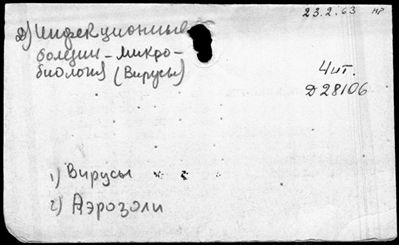 23.2.63 нр
2) Инфекционные
болезни - микро-
биология (Вирусы)
Чит.
D 28106
1) Вирусы
2) Аэрозоли